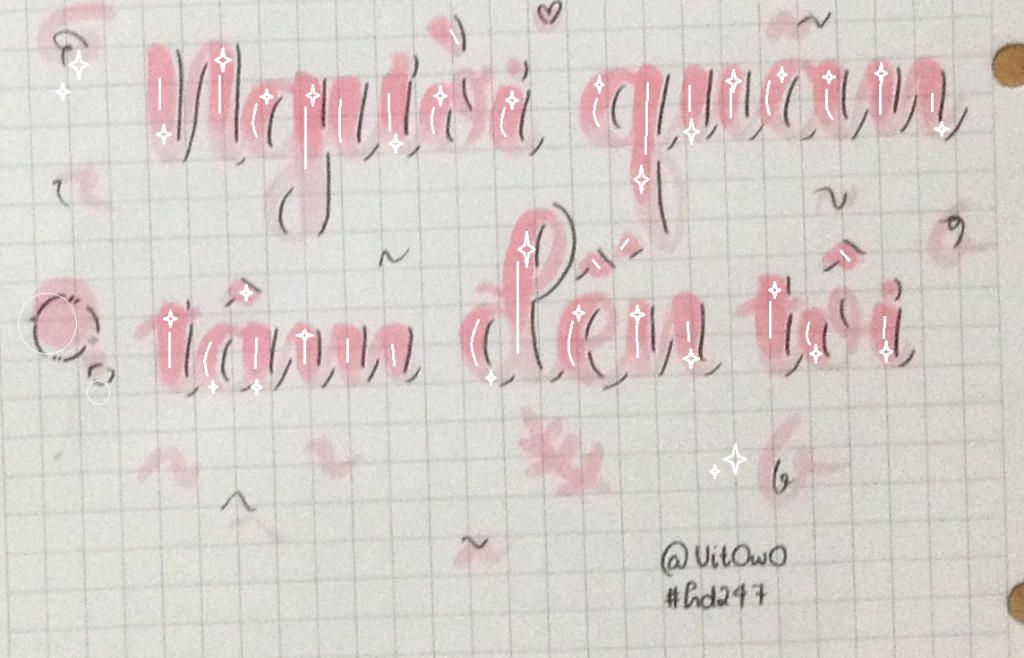 Người quan
tâm đến tôi
@VitOwO
#hd247